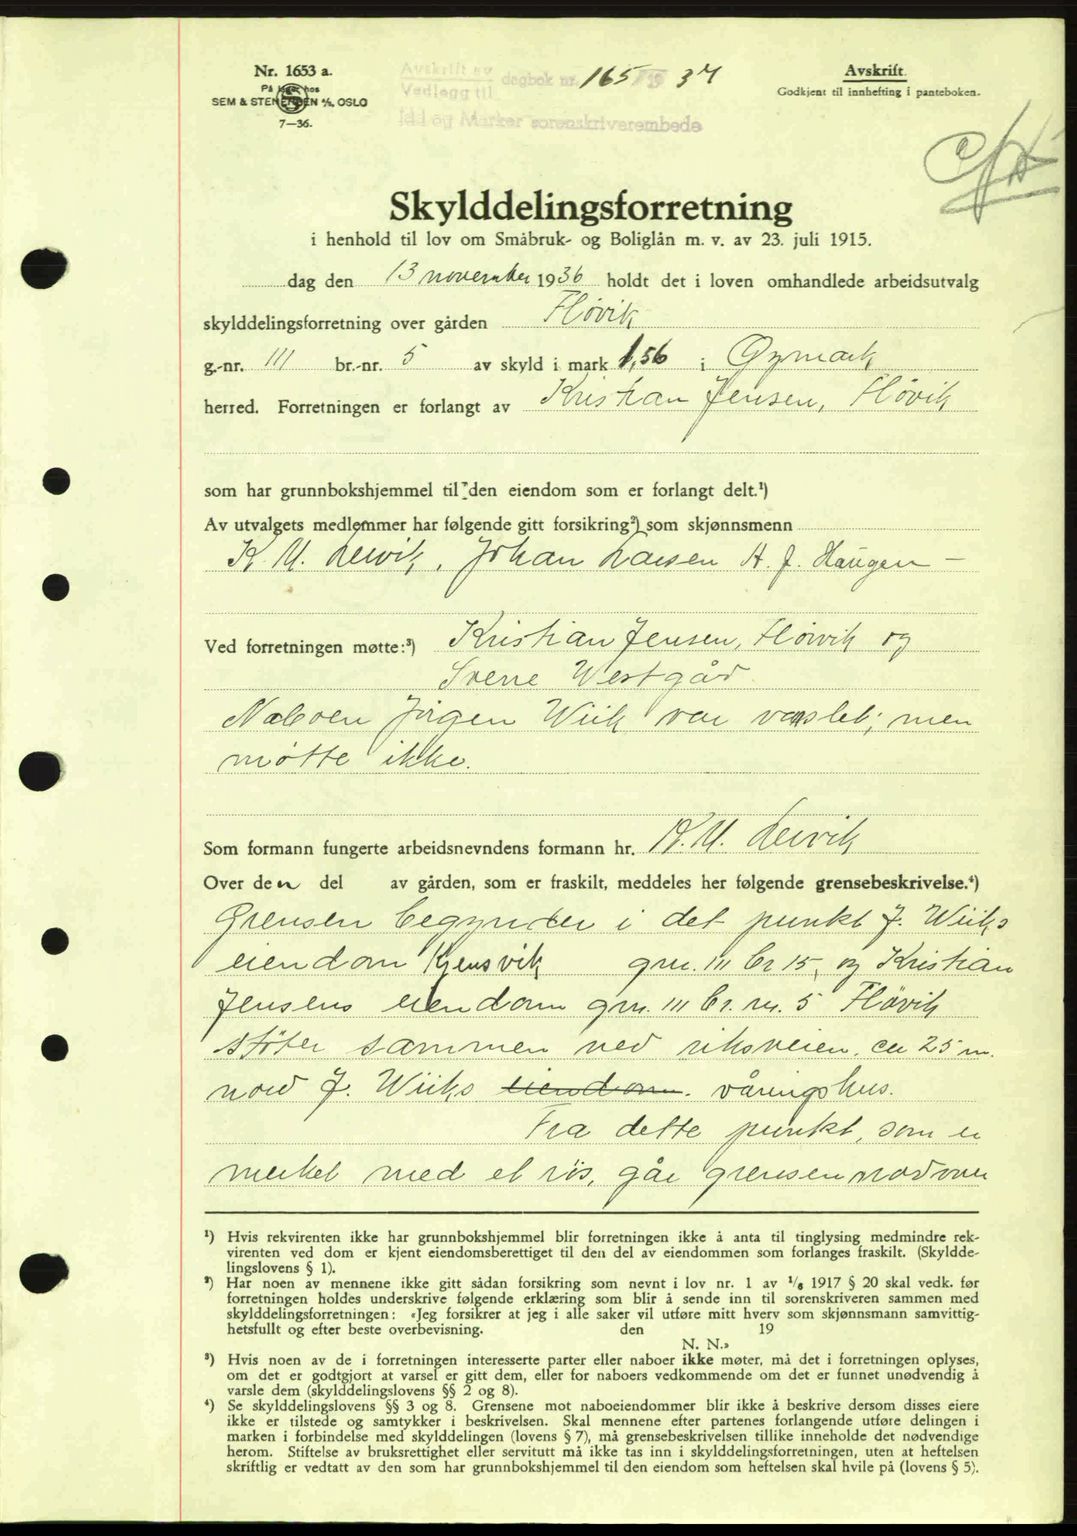 Nr. 1653 a.
På lager hos
SEM & STENERSEN A/S, OSLO
7—36.
Avskrift av
Vedlegg til
dagbok nr. 165 19 37
Idd og Marker sorenskriverembede
Avskrift.
Godkjent til innhefting i panteboken.
Skylddelingsforretning
i henhold til lov om Småbruk- og Boliglån m. v. av 23. juli 1915.
dag den 13 november 1936 holdt det i loven omhandlede arbeidsutvalg
skylddelingsforretning over gården Fløvik
g.-nr. 111 br.-nr. 5 av skyld i mark 1,56 i Øymark
herred. Forretningen er forlangt av Kristian Jensen, Fløvik
som har grunnbokshjemmel til den eiendom som er forlangt delt.¹)
Av utvalgets medlemmer har følgende gitt forsikring²) som skjønnsmenn
K. M. Leivik, Johan Larsen H. J. Haugen —
Ved forretningen møtte:³) Kristian Jensen, Fløivik og
Sverre Westgård
Naboen Jørgen Wiik var varslet; men
møtte ikke.
Som formann fungerte arbeidsnevndens formann hr. K. M. Leivik
Over den del av gården, som er fraskilt, meddeles her følgende grensebeskrivelse.⁴)
Grensen begynder i det punkt J. Wiiks
eiendom Kjensvik gnr. 111 br 15, og Kristian
Jensens eiendom gnr. 111 br. nr. 5 Fløvik
støter sammen ved riksveien, ca 25 m.
nord J. Wiiks eiendom. våningshus.
Fra dette punkt, som er
merket med et røs, går grensen nordover
¹) Hvis rekvirenten ikke har grunnbokshjemmel blir forretningen ikke å anta til tinglysing medmindre rek-
virenten ved dom er kjent eiendomsberettiget til den del av eiendommen som forlanges fraskilt. (Skyldde-
lingslovens § 1).
²) Har noen av mennene ikke gitt sådan forsikring som nevnt i lov nr. 1 av 1/6 1917 § 20 skal vedk. før
forretningen holdes underskrive følgende erklæring som blir å sende inn til sorenskriveren sammen med
skylddelingsforretningen: «Jeg forsikrer at jeg i alle saker vil utføre mitt hverv som skjønnsmann samvittig-
hetsfullt og efter beste overbevisning. den 19
N. N.»
³) Hvis noen av de i forretningen interesserte parter eller naboer ikke møter, må det i forretningen oplyses,
om det er godtgjort at varsel er gitt dem, eller for naboers vedkommende om det er funnet unødvendig å
varsle dem (skylddelingslovens §§ 2 og 8).
⁴) Se skylddelingslovens §§ 3 og 8. Grensene mot naboeiendommer blir ikke å beskrive dersom disses eiere
ikke er tilstede og samtykker i beskrivelsen. Skal mennene efter partenes forlangende utføre delingen i
marken i forbindelse med skylddelingen (lovens § 7), må grensebeskrivelsen tillike inneholde det nødvendige
herom. Stiftelse av bruksrettighet eller servitutt må ikke tas inn i skylddelingsforretningen, uten at heftelsen
skriftlig er vedtatt av den som har grunnbokshjemmel til den eiendom som heftelsen skal hvile på (lovens § 5).